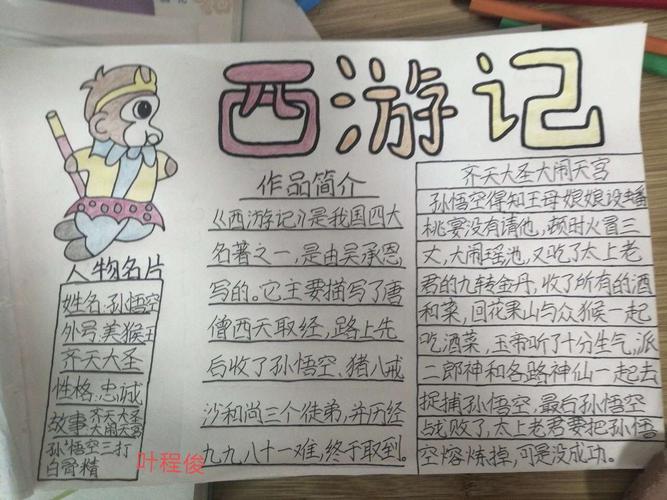 西游记
人物名片
姓名:孙悟空
外号:美猴王
齐天大圣
性格:忠诚
故事:齐天大圣
大闹天宫
孙悟空三打
白骨精
叶程俊
作品简介
《西游记》是我国四大
名著之一,是由吴承恩
写的。它主要描写了唐
僧西天取经,路上先
后收了孙悟空、猪八戒
沙和尚三个徒弟,并历经
九九八十一难,终于取到。
齐天大圣大闹天宫
孙悟空得知王母娘娘设蟠
桃宴没有请他,顿时火冒三
丈,大闹瑶池,又吃了太上老
君的九转金丹,收了所有的酒
和菜,回花果山与众猴一起
吃酒菜,玉帝听了十分生气,派
二郎神和各路神仙一起去
捉捕孙悟空,最后孙悟空
战败了,太上老君要把孙悟
空熔炼掉,可是没成功。